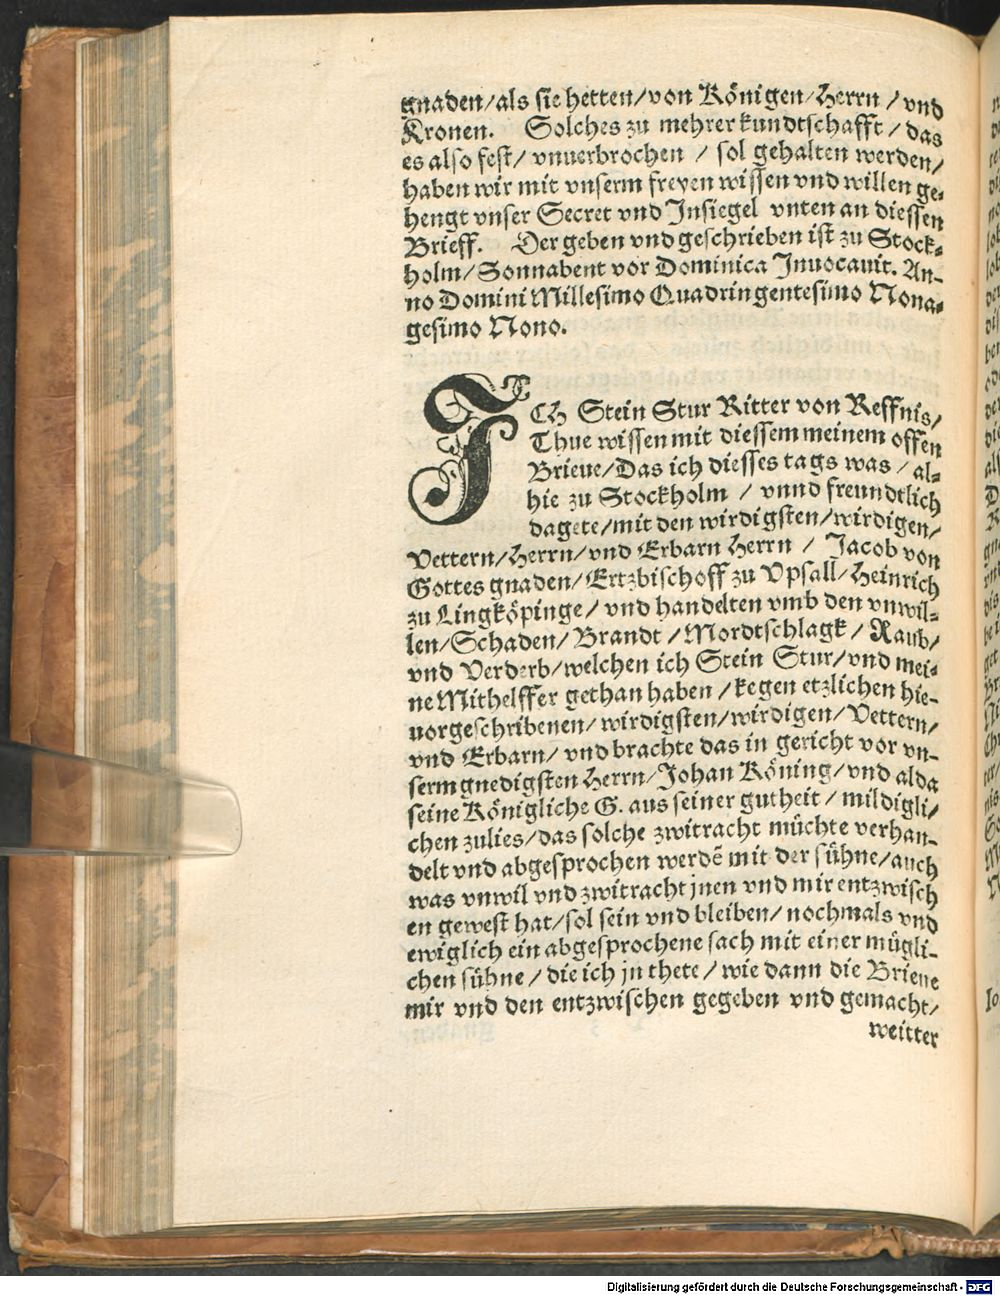 gnaden/als sie hetten/von Königen/Herrn/vnd
Kronen. Solches zu mehrer kundtschafft/das
es also fest/vnuerbrochen/sol gehalten werden/
haben wir mit vnserm freyen wissen vnd willen ge⸗
hengt vnser Secret vnd Insiegel vnten an diessen
Brieff. Der geben vnd geschrieben ist zu Stock⸗
holm/Sonnabent vor Dominica Inuocauit. An⸗
no Domini Millesimo Quadringentesimo Nona⸗
gesimo Nono.
ICH Stein Stur Ritter von Reffnis/
Thue wissen mit diessem meinem offen
Brieue/Das ich diesses tags was/al⸗
hie zu Stockholm/vnnd freundtlich
dagete/mit den wirdigsten/wirdigen/
Vettern/Herrn/vnd Erbarn Herrn/Jacob von
Gottes gnaden/Ertzbischoff zu Vpsall/Heinrich
zu Lingköpinge/vnd handelten vmb den vnwil⸗
len/Schaden/Brandt/Mordtschlagk/Raub/
vnd Verderb/welchen ich Stein Stur/vnd mei⸗
ne Mithelffer gethan haben/kegen etzlichen hie⸗
uorgeschribenen/wirdigsten/wirdigen/Vettern/
vnd Erbarn/vnd brachte das in gericht vor vn⸗
serm gnedigsten Herrn/Johan Köning/vnd alda
seine Königliche G. aus seiner gutheit/mildigli/
chen zulies/das solche zwitracht müchte verhan⸗
delt vnd abgesprochen werdē mit der sühne/auch
was vnwil vnd zwitracht jnen vnd mir entzwisch
en gewest hat/sol sein vnd bleiben/nochmals vnd
ewiglich ein abgesprochene sach mit einer mügli⸗
chen sühne/die ich jn thete/wie dann die Brieue
mir vnd den entzwischen gegeben vnd gemacht/
weitter
Digitalisierung gefördert durch die Deutsche Forschungsgemeinschaft - DFG